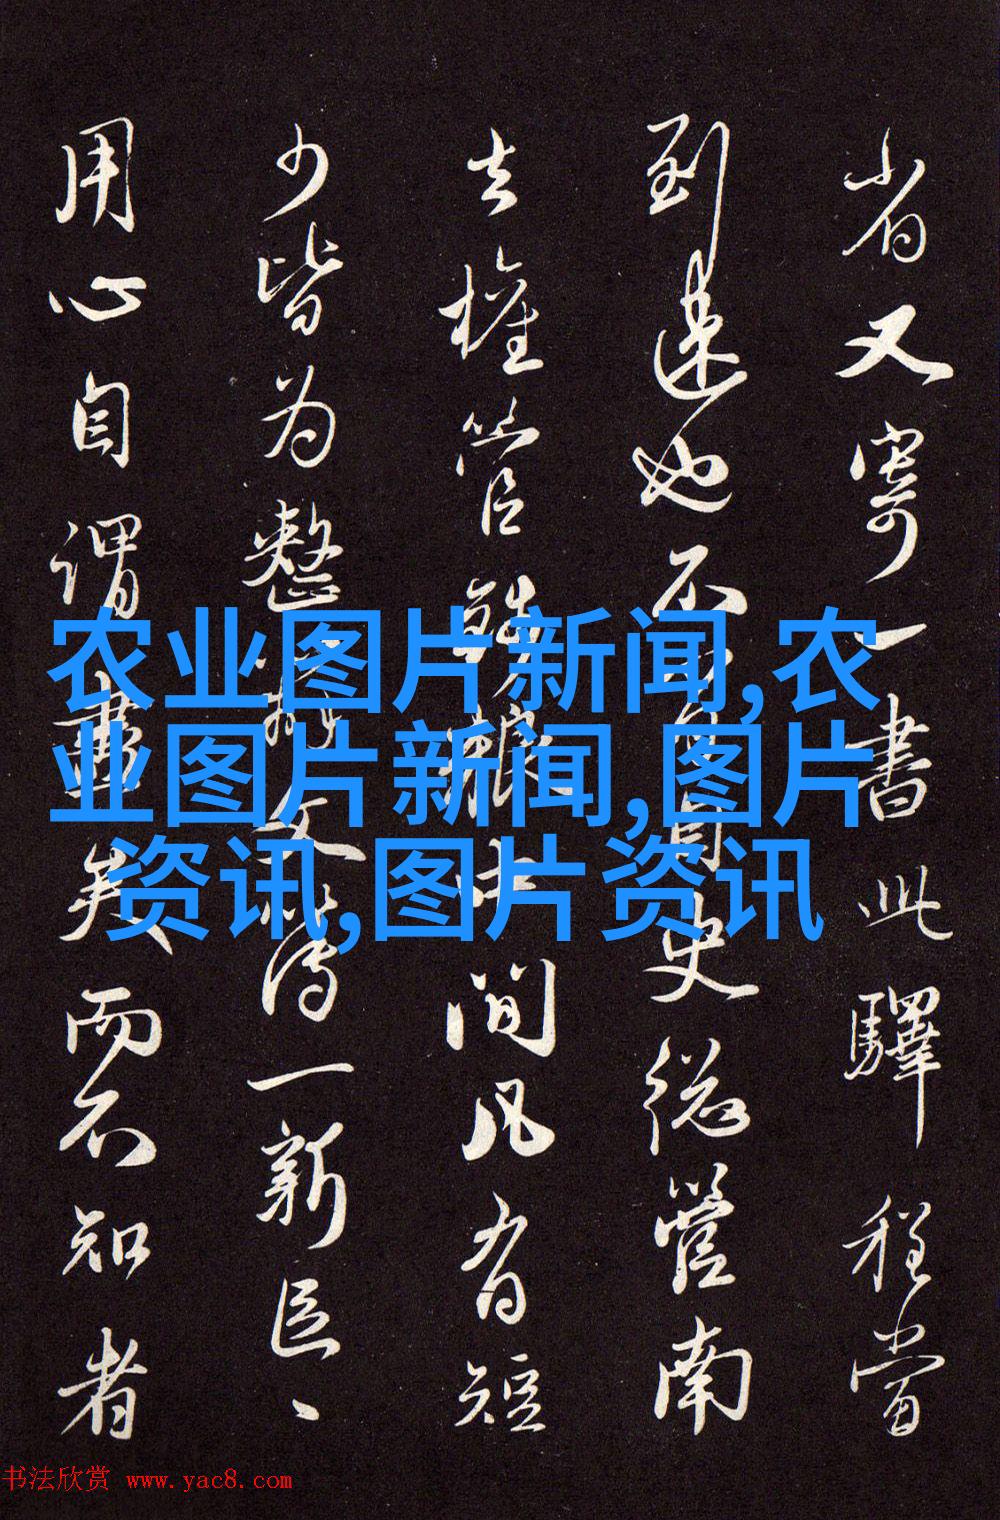 省又寄一書此驛程當
到速也不自史總營南
去權管錢糧中間凡有短
少皆为整辦文一新臣、
用心自謂盡矣而不知者
农业图片新闻,农
业图片新闻,图片
资讯,图片资讯
书法欣赏 www.yac8.com